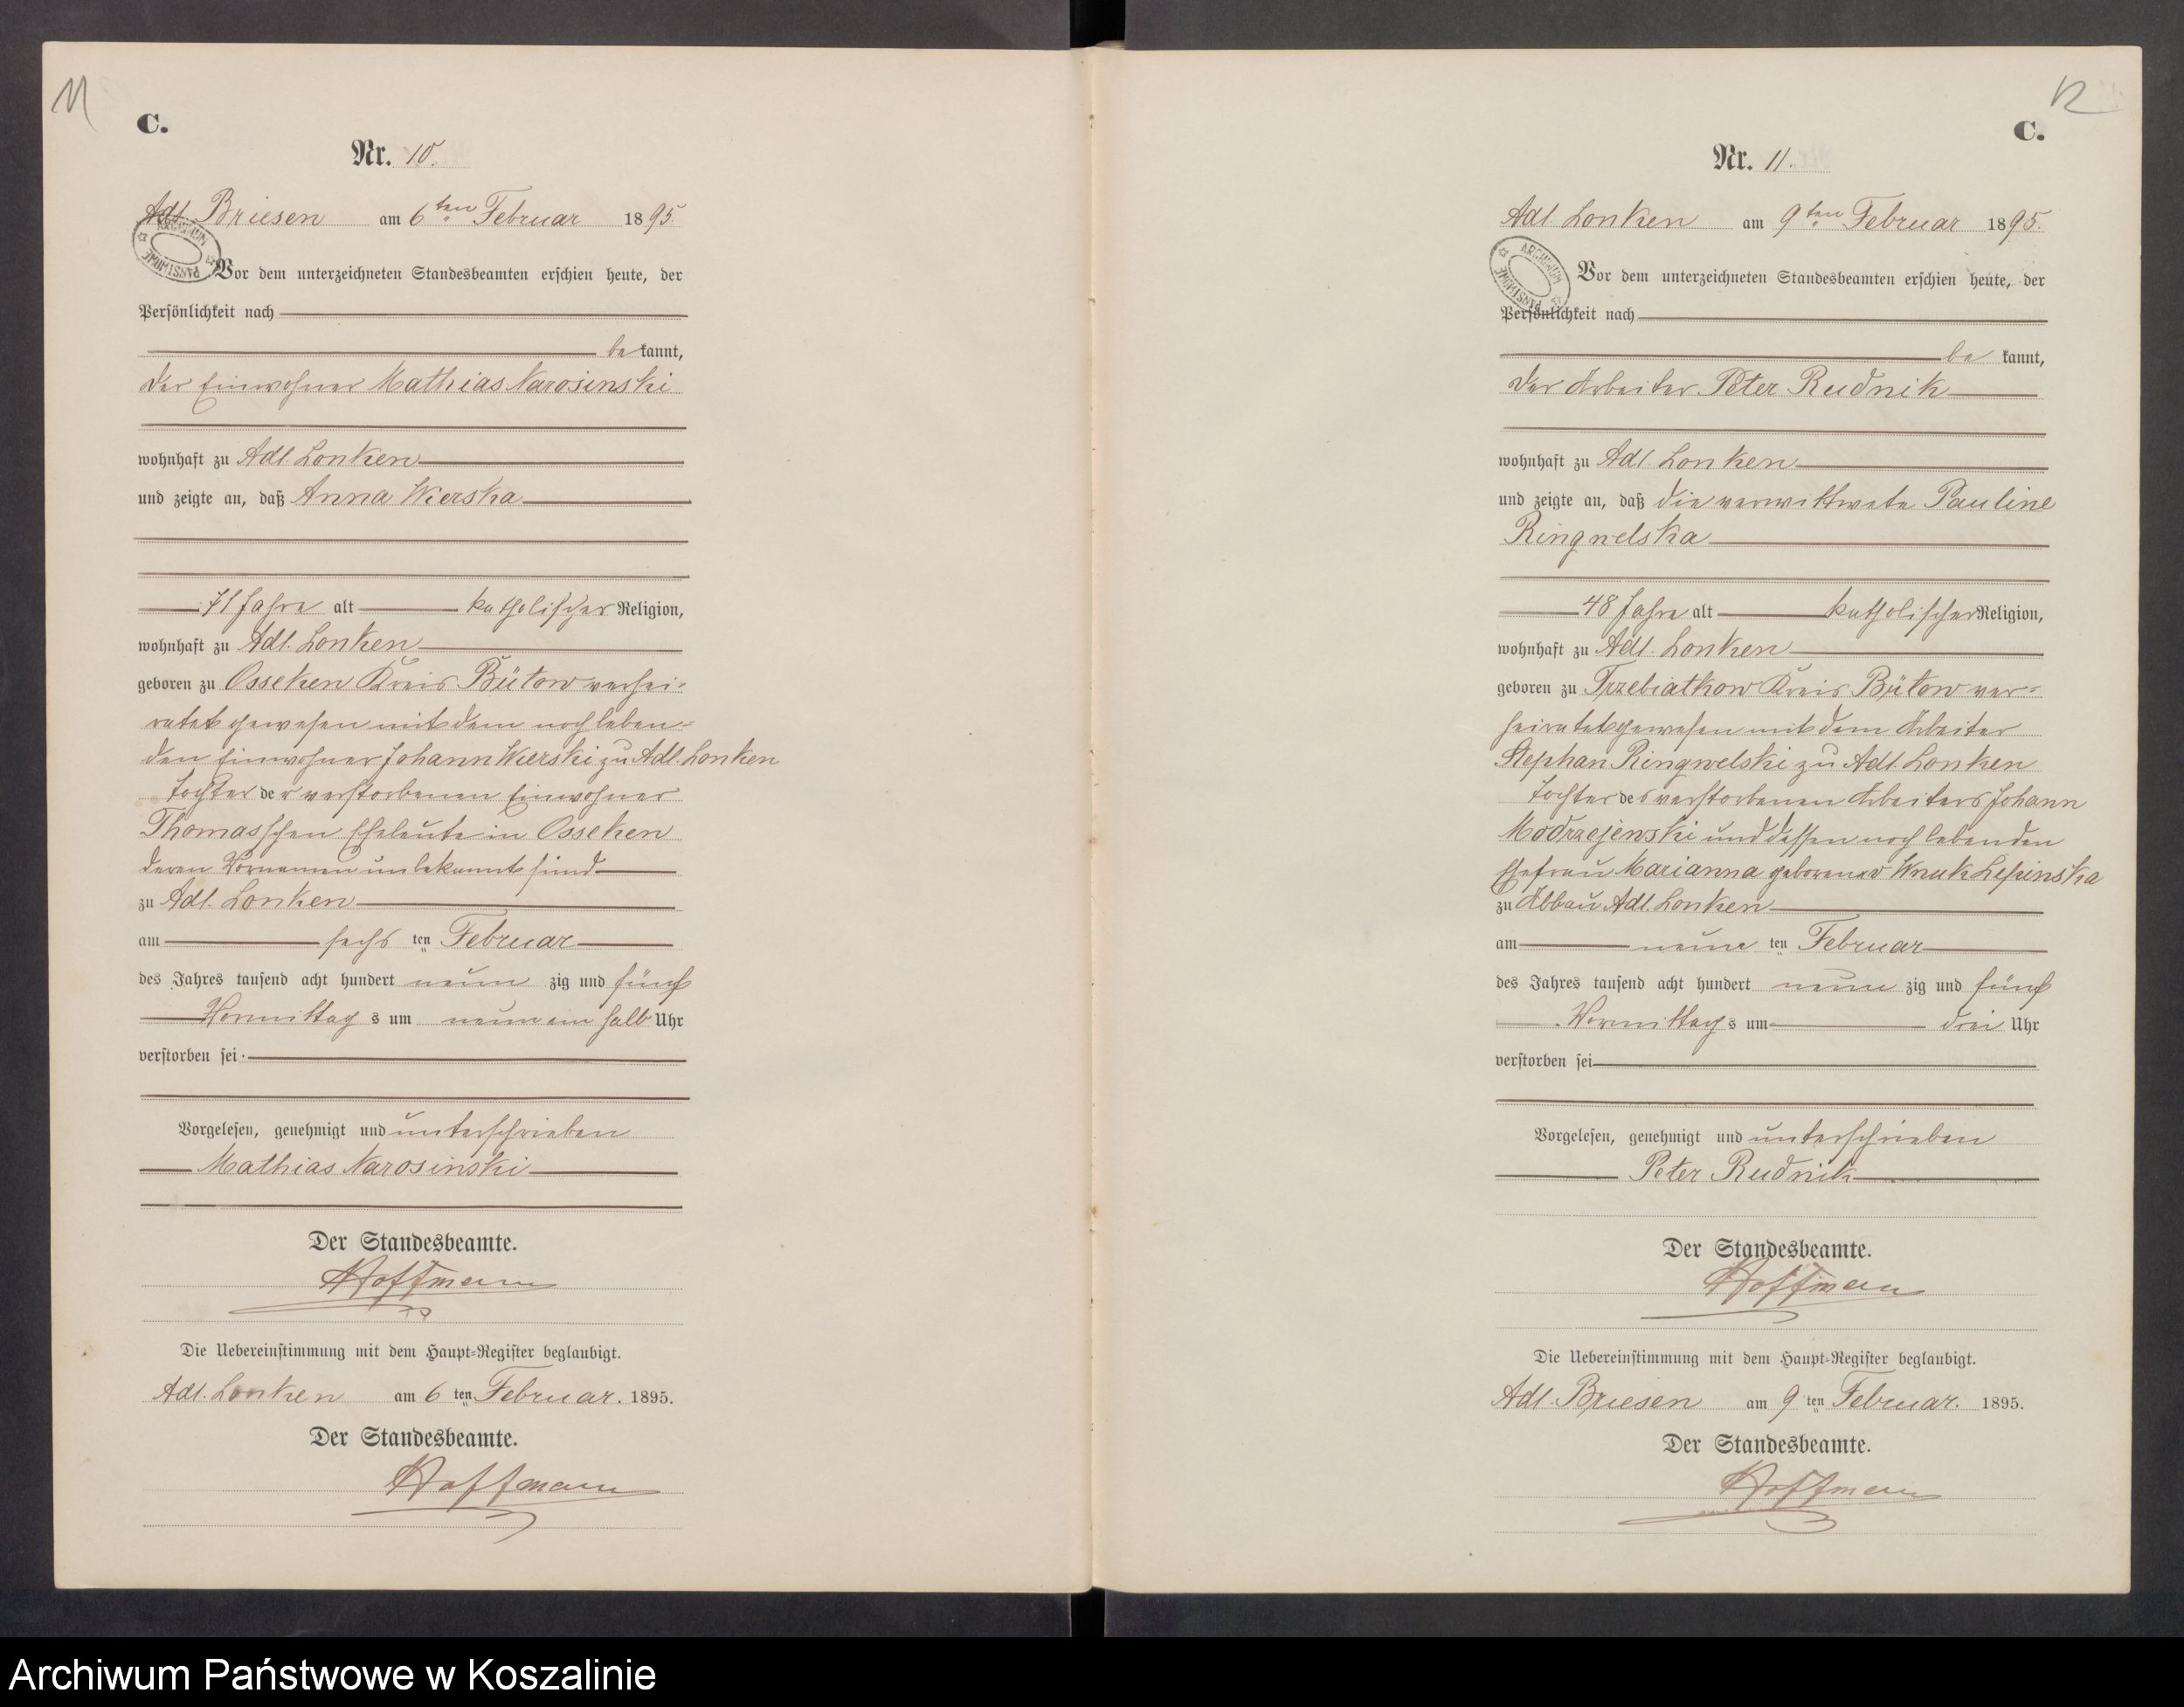 11
C.
Nr. 10.
Adl. Briesen am 6ten Februar 1895.
ARCHIWUM PAŃSTWOWE
Vor dem unterzeichneten Standesbeamten erschien heute, der
Persönlichkeit nach
be kannt,
der Einwohner Mathias Narosinski
wohnhaft zu Adl. Lonken
und zeigte an, daß Anna Wierska
71 Jahre alt katholischer Religion,
wohnhaft zu Adl. Lonken
geboren zu Osseken Kreis Bütow verhei-
ratet gewesen mit dem noch leben-
den Einwohner Johann Wierski zu Adl. Lonken
Tochter der verstorbenen Einwohner
Thomasschen Eheleute in Osseken
deren Vornamen unbekannt sind
zu Adl. Lonken
am sechs ten Februar
des Jahres tausend acht hundert neun zig und fünf
Vormittag s um neun ein halb Uhr
verstorben sei.
Vorgelesen, genehmigt und unterschrieben
Mathias Narosinski
Der Standesbeamte.
Hoffmann
Die Uebereinstimmung mit dem Haupt-Register beglaubigt.
Adl. Lonken am 6 ten Februar. 1895.
Der Standesbeamte.
Hoffmann
12
C.
Nr. 11.
Adl. Lonken am 9ten Februar 1895.
ARCHIWUM PAŃSTWOWE
Vor dem unterzeichneten Standesbeamten erschien heute, der
Persönlichkeit nach
be kannt,
der Arbeiter Peter Rudnik
wohnhaft zu Adl. Lonken
und zeigte an, daß die verwittwete Pauline
Ringwelska
48 Jahre alt katholischer Religion,
wohnhaft zu Adl. Lonken
geboren zu Trzebiatkow Kreis Bütow ver-
heiratet gewesen mit dem Arbeiter
Stephan Ringwelski zu Adl. Lonken
Tochter des verstorbenen Arbeiters Johann
Modrzejewski und dessen noch lebenden
Ehefrau Marianna geborener Wnuk Lepinska
zu Abbau Adl. Lonken
am neun ten Februar
des Jahres tausend acht hundert neun zig und fünf
Vormittag s um drei Uhr
verstorben sei
Vorgelesen, genehmigt und unterschrieben
Peter Rudnik
Der Standesbeamte.
Hoffmann
Die Uebereinstimmung mit dem Haupt-Register beglaubigt.
Adl. Briesen am 9 ten Februar. 1895.
Der Standesbeamte.
Hoffmann
Archiwum Państwowe w Koszalinie